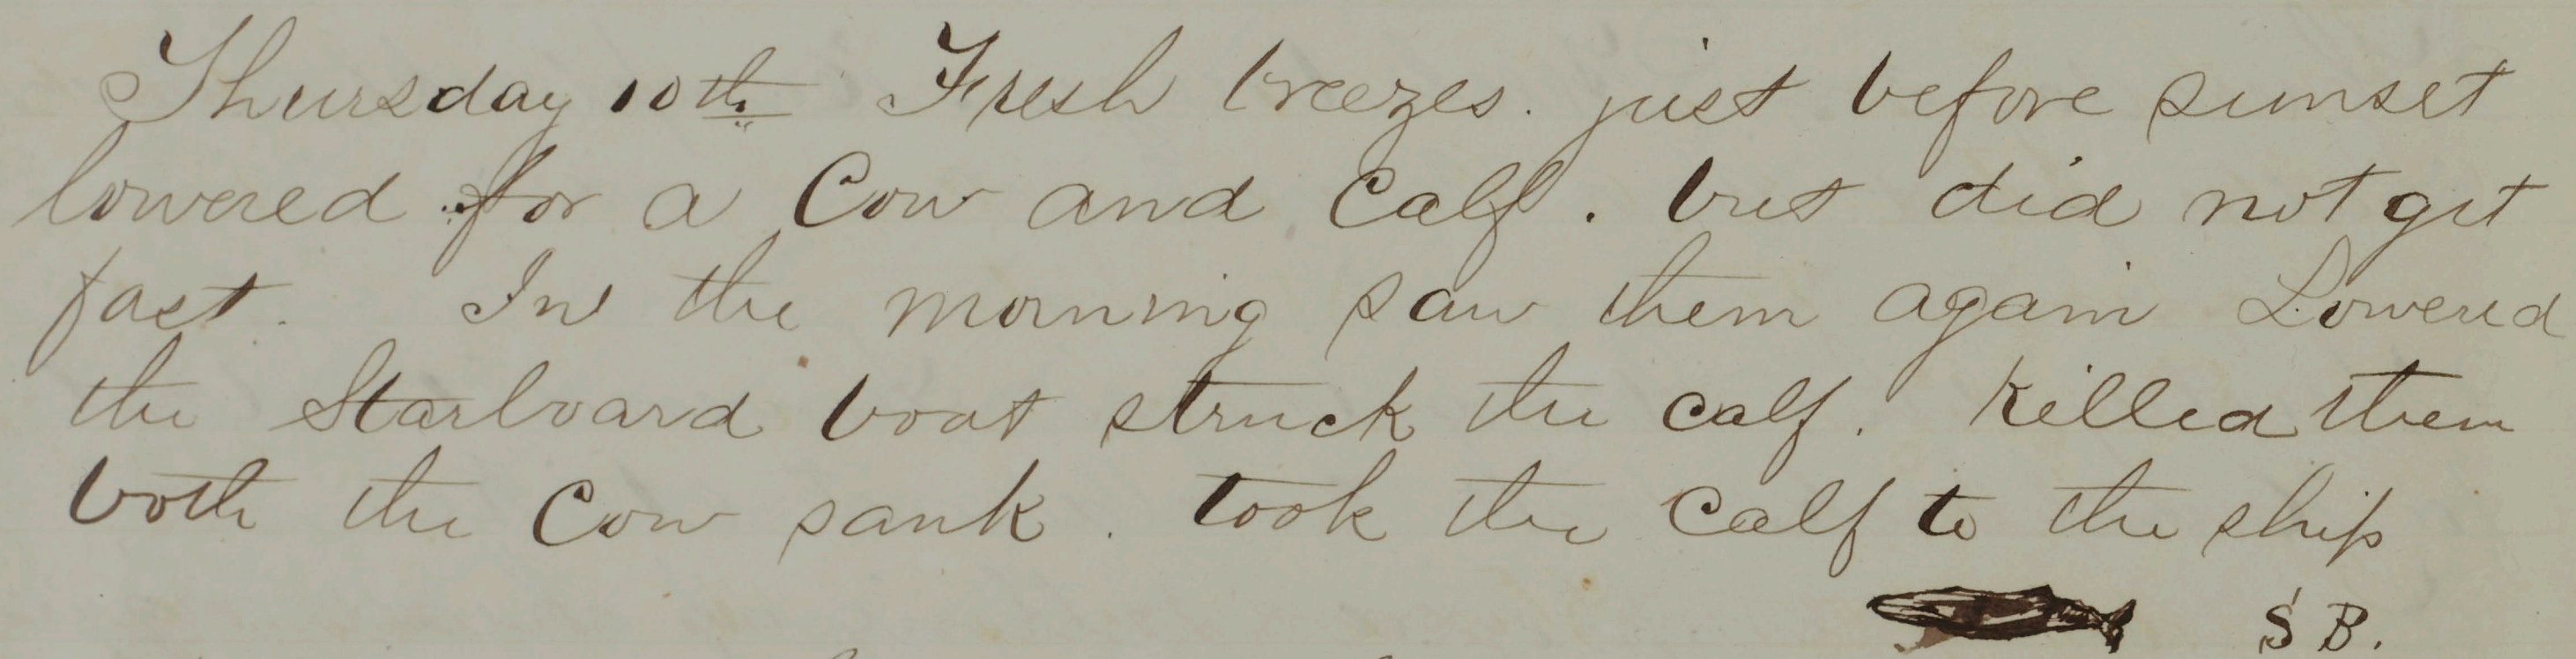 Thursday 10th Fresh breezes. just before sunset
lowered for a Cow and Calf. but did not get
fast. In the morning saw them again Lowered
the Starboard boat struck the calf. Killed them
both the Cow sank. took the Calf to the ship
S B.